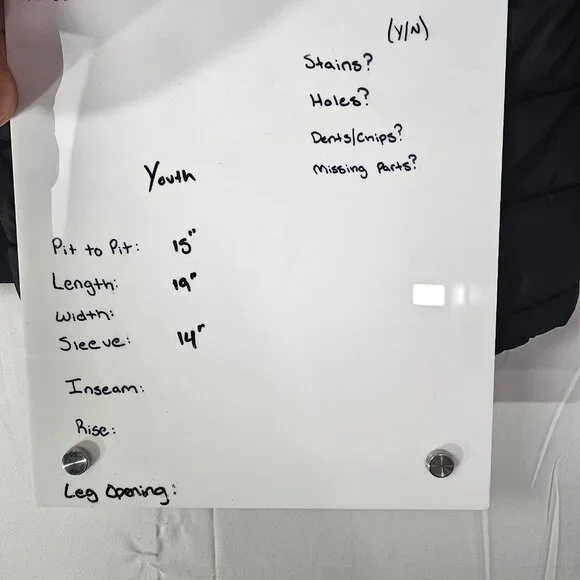 (Y/N)
Stains?
Holes?
Dents/Chips?
Missing Parts?
Youth
Pit to Pit: 15"
Length: 19"
Width:
Sleeve: 14"
Inseam:
Rise:
Leg Opening: